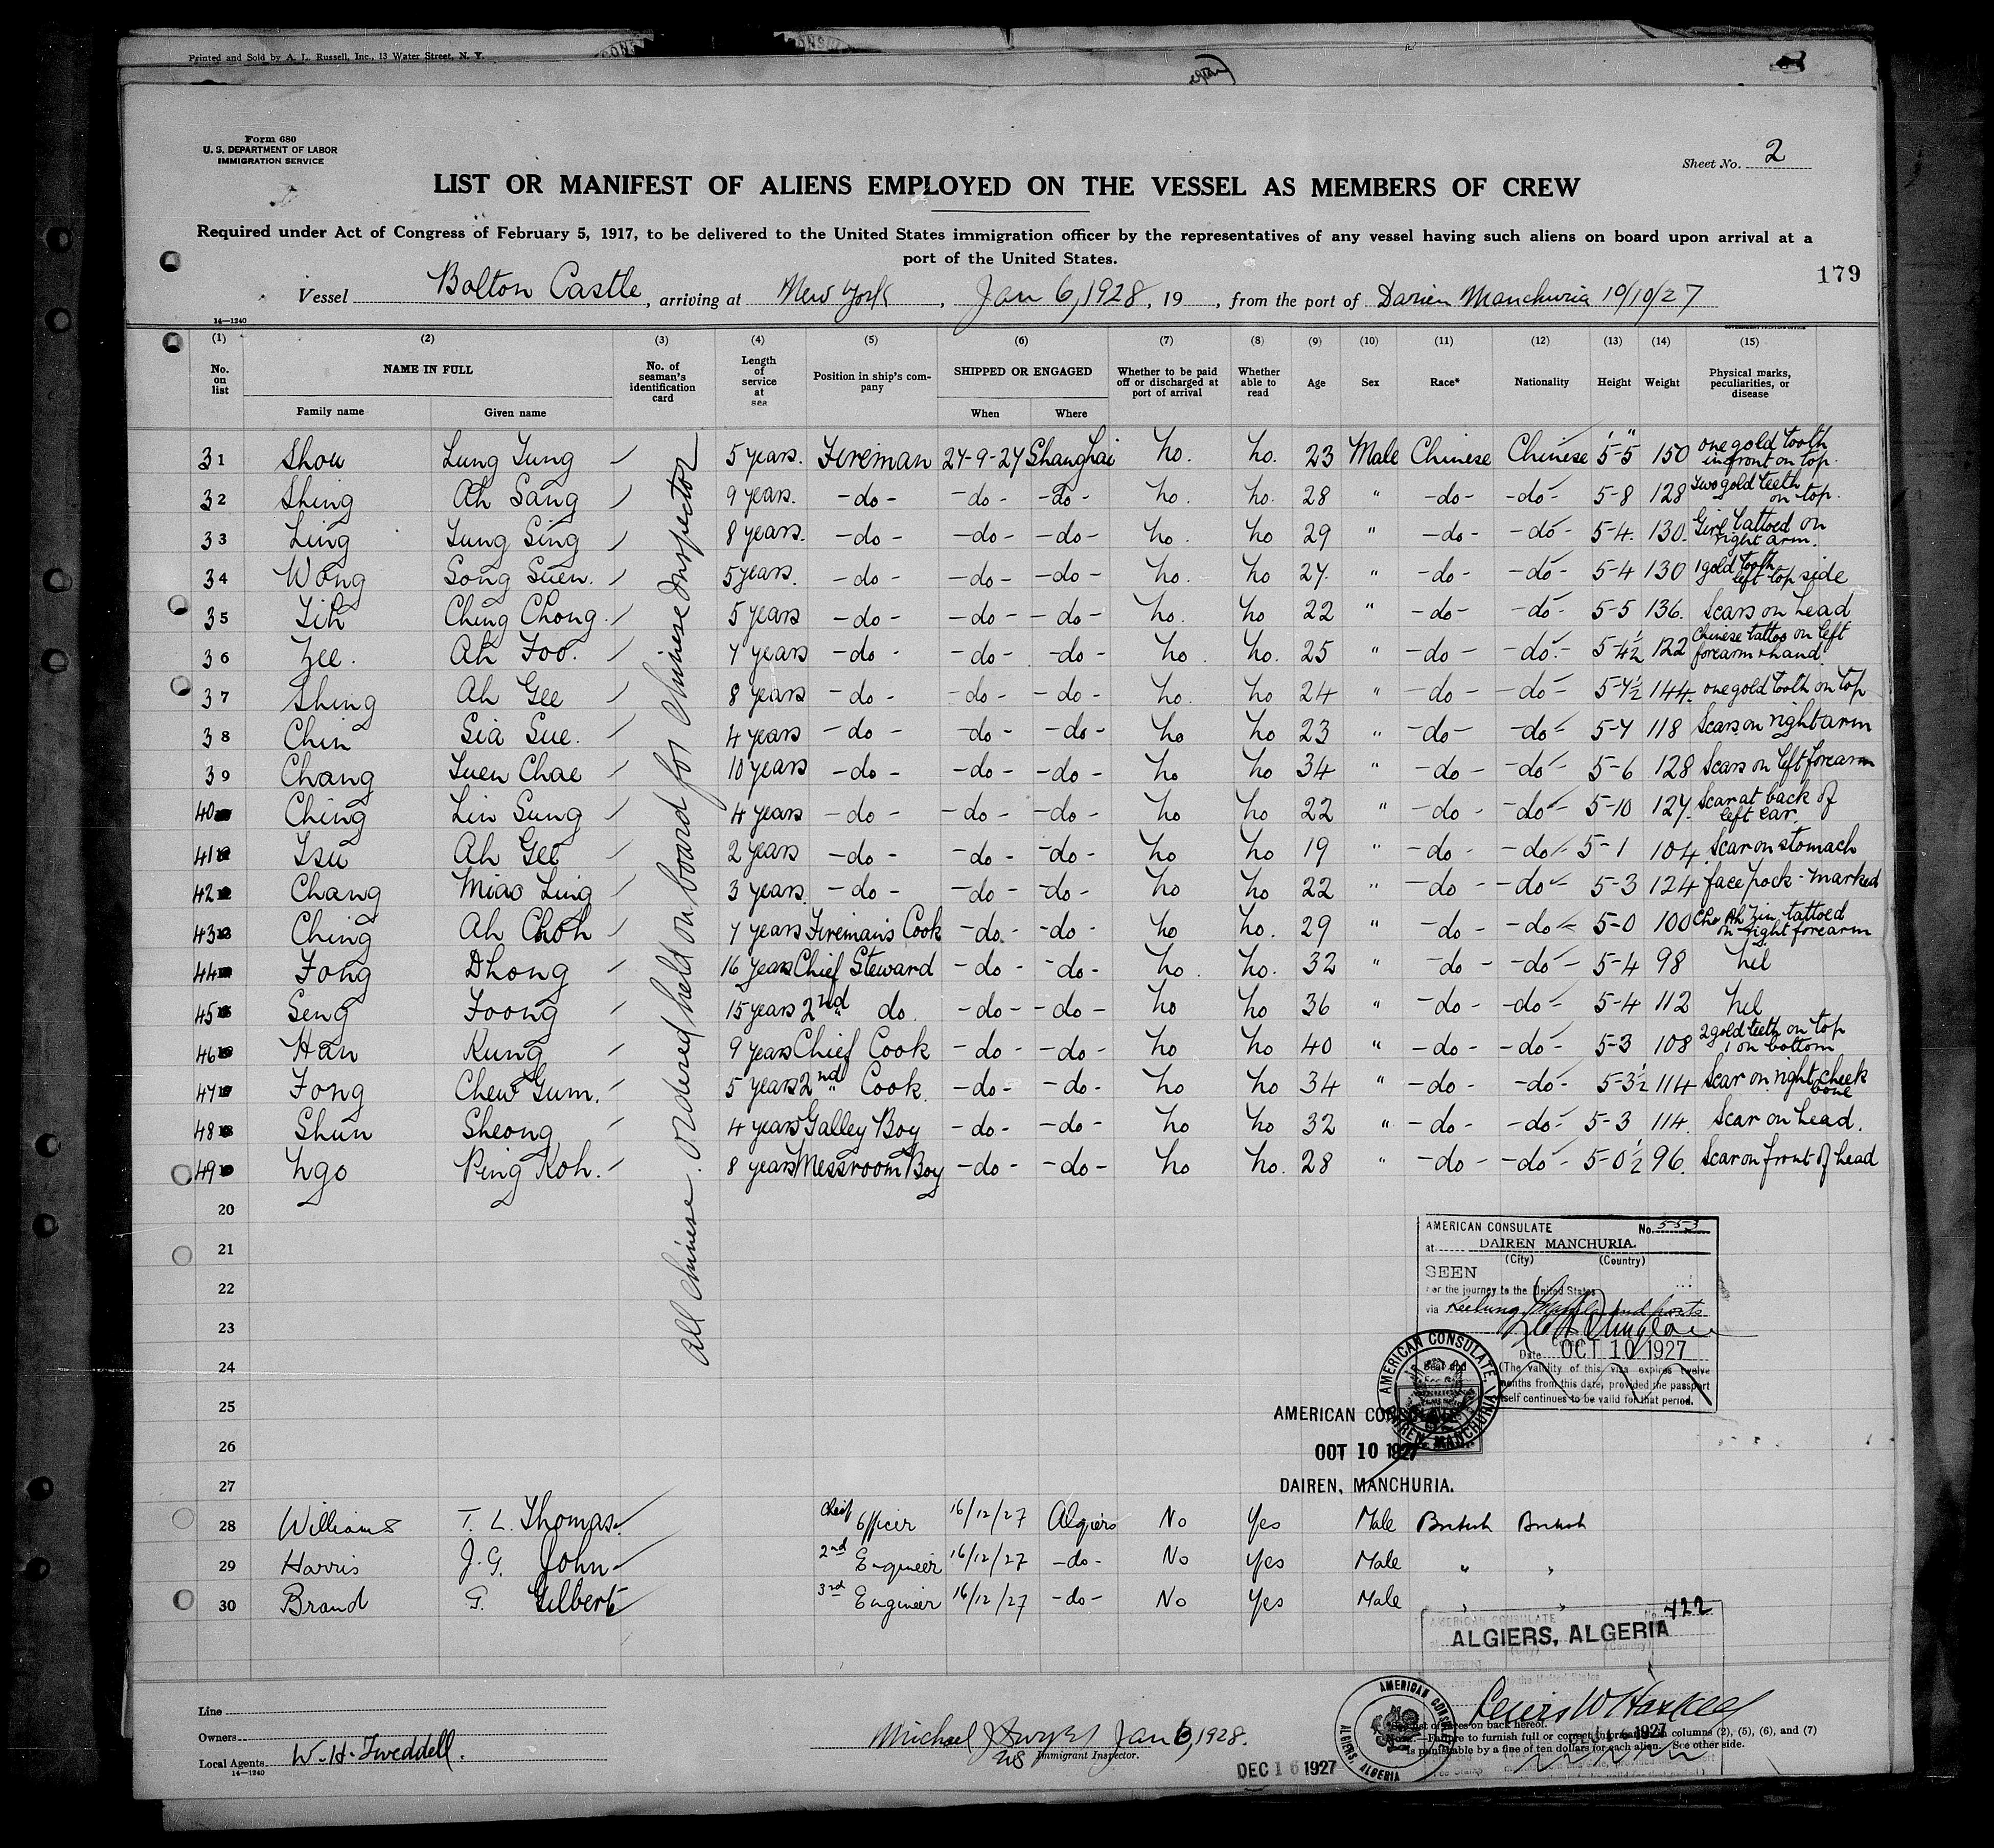 Printed and Sold by A. L. Russell, Inc., 13 Water Street, N. Y.
Form 680
U. S. DEPARTMENT OF LABOR
IMMIGRATION SERVICE
Sheet No. 2
LIST OR MANIFEST OF ALIENS EMPLOYED ON THE VESSEL AS MEMBERS OF CREW
Required under Act of Congress of February 5, 1917, to be delivered to the United States immigration officer by the representatives of any vessel having such aliens on board upon arrival at a
port of the United States.
179
Vessel Bolton Castle, arriving at New York, Jan 6, 1928, 19 , from the port of Darien Manchuria 10/10/27
14—1240
(1) (2) (3) (4) (5) (6) (7) (8) (9) (10) (11) (12) (13) (14) (15)
No. on list NAME IN FULL No. of seaman's identification card Length of service at sea Position in ship's company SHIPPED OR ENGAGED Whether to be paid off or discharged at port of arrival Whether able to read Age Sex Race* Nationality Height Weight Physical marks, peculiarities, or disease
Family name Given name When Where
31 Shou Lung Tung 5 years. Fireman 27-9-27 Shanghai No. No. 23 Male Chinese Chinese 5'-5" 150 one gold tooth in front on top.
32 Shing Ah Sang 9 years. -do- -do- -do- No. No. 28 " -do- -do- 5-8 128 Two gold teeth on top.
33 Ling Tung Sing 8 years. -do- -do- -do- No. No 29 " -do- -do- 5-4. 130. Girl tattoed on right arm.
34 Wong Song Suen. 5 years. -do- -do- -do- No. No 27. " -do- -do- 5-4 130 1 gold tooth left top side
35 Yih Ching Chong. 5 years -do- -do- -do- No. No 22 " -do- -do- 5-5 136. Scars on head
36 Zee. Ah Foo. 7 years -do- -do- -do- No. No. 25 " -do- -do- 5-4½ 122 Chinese tattoo on left forearm & hand.
37 Shing Ah Gee 8 years -do- -do- -do- No. No 24 " -do- -do- 5-7½ 144. one gold tooth on top
38 Chin Sia Sue. 4 years -do- -do- -do- No No 23 " -do- -do- 5-7 118 Scars on right arm
39 Chang Yuen Chae 10 years -do- -do- -do- No No 34 " -do- -do- 5-6 128 Scars on left forearm
40 Ching Lin Sung 4 years -do- -do- -do- No No 22 " -do- -do- 5-10 127. Scar at back of left ear.
41 Tsu Ah Gee 2 years -do- -do- -do- No No 19 " -do- -do- 5-1 104. Scar on stomach
42 Chang Miao Ling 3 years. -do- -do- -do- No No 22 " -do- -do- 5-3 124 face pock-marked
43 Ching Ah Choh 7 years Fireman's Cook -do- -do- No No. 29 " -do- -do- 5-0 100 Cho Ah Zin tattoed on right forearm
44 Fong Dhong 16 years Chief Steward -do- -do- No. No. 32 " -do- -do- 5-4 98 Nil
45 Seng Foong 15 years 2nd do. -do- -do- No No 36 " -do- -do- 5-4 112 Nil
46 Han Kung 9 years Chief Cook -do- -do- No No 40 " -do- -do- 5-3 108 2 gold teeth on top 1 on bottom
47 Fong Chew Gum. 5 years 2nd Cook. -do- -do- No No 34 " -do- -do- 5-3½ 114 Scar on right cheek bone
48 Shun Sheong 4 years Galley Boy -do- -do- No No 32 " -do- -do- 5-3 114. Scar on head.
49 Ngo Ping Koh. 8 years Messroom Boy -do- -do- No No. 28 " -do- -do- 5-0½ 96. Scar on front of head
All Chinese ordered held on board for Chinese Inspector
20
21
22
23
24
25
26
27
AMERICAN CONSULATE No. 553
at DAIREN MANCHURIA.
(City) (Country)
SEEN
For the journey to the United States
via Keelung, Manila and ports
Date OCT 10 1927
(The validity of this visa expires twelve
months from this date, provided the passport
itself continues to be valid for that period.
AMERICAN CONSULATE, DAIREN, MANCHURIA
AMERICAN CONSULATE
OCT 10 1927
DAIREN, MANCHURIA.
28 Williams T. L. Thomas. Chief Officer 16/12/27 Algiers No Yes Male British British
29 Harris J. G. John 2nd Engineer 16/12/27 -do- No Yes Male " "
30 Brand G. Gilbert 3rd Engineer 16/12/27 -do- No Yes Male " "
AMERICAN CONSULATE No. 422
ALGIERS, ALGERIA
(City) (Country)
AMERICAN CONSULATE ALGIERS, ALGERIA
Lewis W Haskell
Line
Owners
Local Agents W. H. Tweddell.
14—1240
Michael Jan 6, 1928.
Immigrant Inspector.
DEC 16 1927
list of races on back hereof.
Note.—Failure to furnish full or correct information in columns (2), (5), (6), and (7)
is punishable by a fine of ten dollars for each alien. See other side.